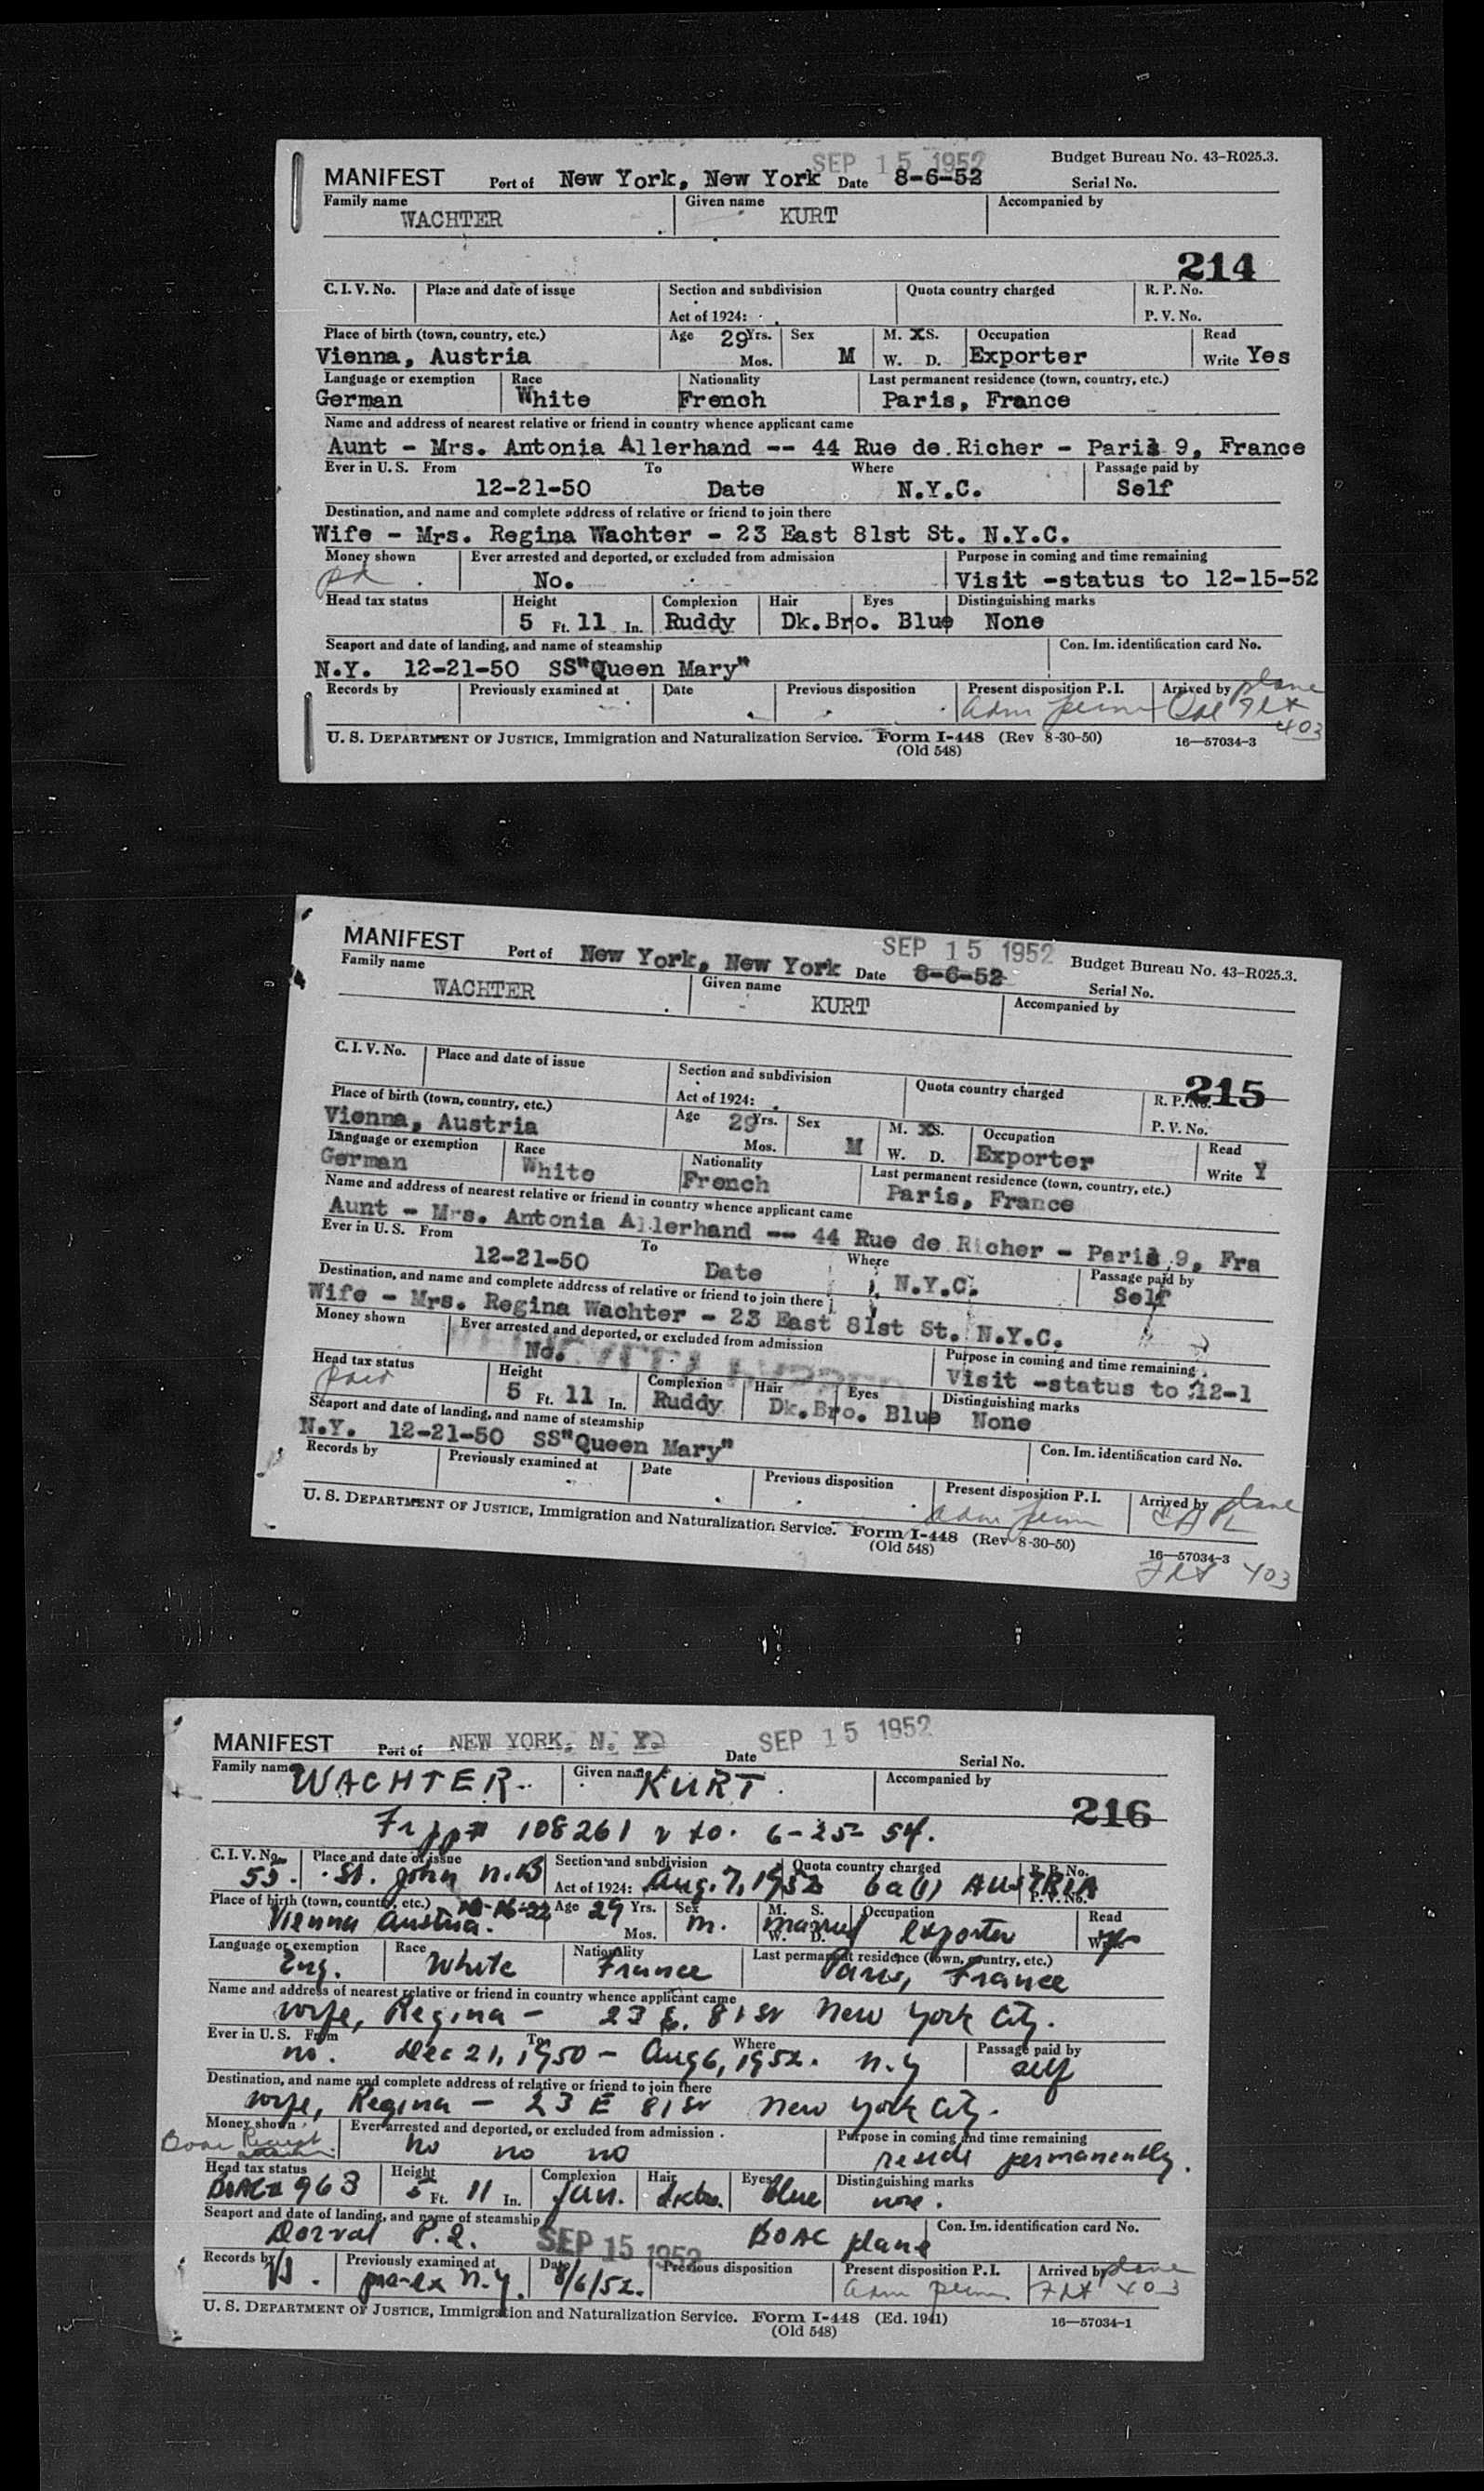 SEP 15 1952 Budget Bureau No. 43-R025.3.
MANIFEST Port of New York, New York Date 8-6-52 Serial No.
Family name Given name Accompanied by
WACHTER KURT
214
C. I. V. No. Place and date of issue Section and subdivision Quota country charged R. P. No.
Act of 1924: P. V. No.
Place of birth (town, country, etc.) Age 29 Yrs. Sex M. X S. Occupation Read
Vienna, Austria Mos. M W. D. Exporter Write Yes
Language or exemption Race Nationality Last permanent residence (town, country, etc.)
German White French Paris, France
Name and address of nearest relative or friend in country whence applicant came
Aunt - Mrs. Antonia Allerhand -- 44 Rue de Richer - Paris 9, France
Ever in U. S. From To Where Passage paid by
12-21-50 Date N.Y.C. Self
Destination, and name and complete address of relative or friend to join there
Wife - Mrs. Regina Wachter - 23 East 81st St. N.Y.C.
Money shown Ever arrested and deported, or excluded from admission Purpose in coming and time remaining
pd No. Visit -status to 12-15-52
Head tax status Height Complexion Hair Eyes Distinguishing marks
5 Ft. 11 In. Ruddy Dk.Bro. Blue None
Seaport and date of landing, and name of steamship Con. Im. identification card No.
N.Y. 12-21-50 SS"Queen Mary"
Records by Previously examined at Date Previous disposition Present disposition P. I. Arrived by plane
adm perm Flt 403
U. S. DEPARTMENT OF JUSTICE, Immigration and Naturalization Service. Form I-448 (Rev 8-30-50) 16—57034-3
(Old 548)
SEP 15 1952 Budget Bureau No. 43-R025.3.
MANIFEST Port of New York, New York Date 8-6-52 Serial No.
Family name Given name Accompanied by
WACHTER KURT
215
C. I. V. No. Place and date of issue Section and subdivision Quota country charged R. P. No.
Act of 1924: P. V. No.
Place of birth (town, country, etc.) Age 29 Yrs. Sex M. X S. Occupation Read
Vienna, Austria Mos. M W. D. Exporter Write Y
Language or exemption Race Nationality Last permanent residence (town, country, etc.)
German White French Paris, France
Name and address of nearest relative or friend in country whence applicant came
Aunt - Mrs. Antonia Allerhand -- 44 Rue de Richer - Paris 9, Fra
Ever in U. S. From To Where Passage paid by
12-21-50 Date N.Y.C. Self
Destination, and name and complete address of relative or friend to join there
Wife - Mrs. Regina Wachter - 23 East 81st St. N.Y.C.
Money shown Ever arrested and deported, or excluded from admission Purpose in coming and time remaining
No. Visit -status to 12-1
Head tax status Height Complexion Hair Eyes Distinguishing marks
paid 5 Ft. 11 In. Ruddy Dk.Bro. Blue None
Seaport and date of landing, and name of steamship Con. Im. identification card No.
N.Y. 12-21-50 SS"Queen Mary"
Records by Previously examined at Date Previous disposition Present disposition P. I. Arrived by plane
adm perm
U. S. DEPARTMENT OF JUSTICE, Immigration and Naturalization Service. Form I-448 (Rev 8-30-50) 16—57034-3
(Old 548) Flt 403
MANIFEST Port of NEW YORK, N. Y. Date SEP 15 1952 Serial No.
Family name WACHTER Given name KURT Accompanied by
216
Fr pp# 108261 v to. 6-25-54.
C. I. V. No. Place and date of issue Section and subdivision Quota country charged R. P. No.
55. St. John N.B Act of 1924: Aug. 7, 1952 6a(1) AUSTRIA P. V. No.
Place of birth (town, country, etc.) 10-16-22 Age 29 Yrs. Sex M. S. Occupation Read
Vienna Austria. Mos. M. married W. D. exporter Write yes
Language or exemption Race Nationality Last permanent residence (town, country, etc.)
Eng. White France Paris, France
Name and address of nearest relative or friend in country whence applicant came
wife, Regina - 23 E. 81 St New York City.
Ever in U. S. From To Where Passage paid by
no. Dec 21, 1950 - Aug 6, 1952. N.Y self
Destination, and name and complete address of relative or friend to join there
wife, Regina - 23 E 81 St New York City.
Money shown Ever arrested and deported, or excluded from admission Purpose in coming and time remaining
Boac Receipt no no no reside permanently.
Head tax status Height Complexion Hair Eyes Distinguishing marks
BOAC# 963 5 Ft. 11 In. fair. dkbr. blue none.
Seaport and date of landing, and name of steamship Con. Im. identification card No.
Dorval P.Q. SEP 15 1952 BOAC plane
Records by Previously examined at Date Previous disposition Present disposition P. I. Arrived by plane
pre-ex N.Y. 8/6/52. adm perm Flt 403
U. S. DEPARTMENT OF JUSTICE, Immigration and Naturalization Service. Form I-448 (Ed. 1941) 16—57034-1
(Old 548)